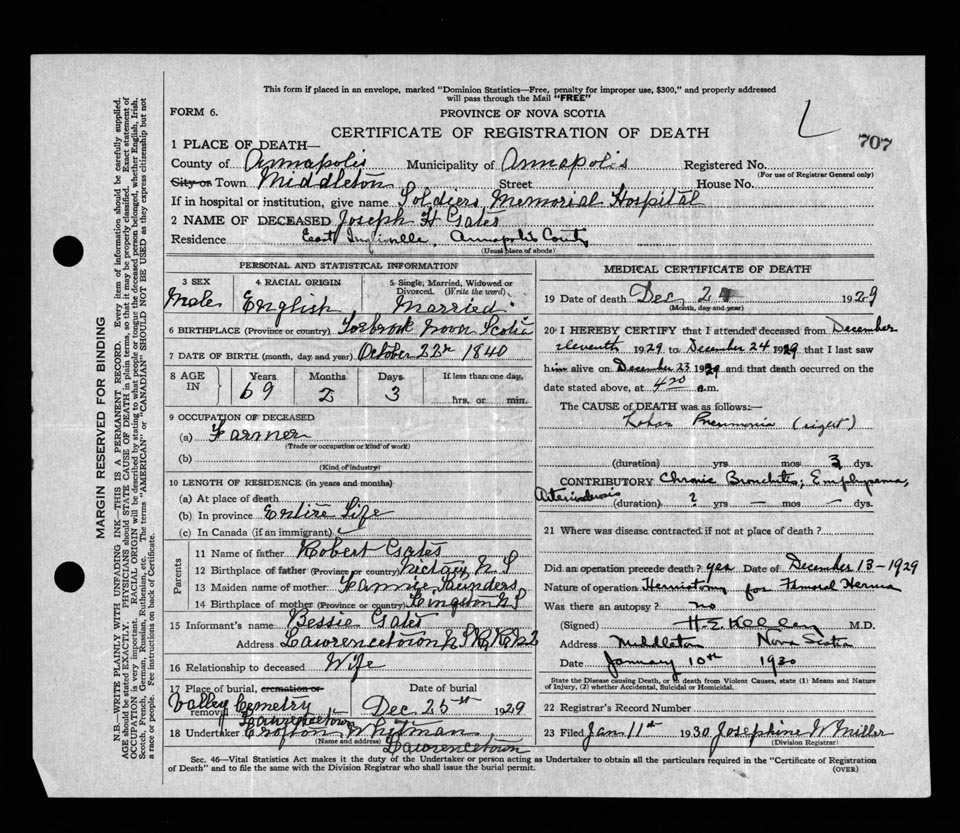 This form if placed in an envelope, marked "Dominion Statistics—Free, penalty for improper use, $300," and properly addressed
will pass through the Mail "FREE"
FORM 6.
PROVINCE OF NOVA SCOTIA
L
CERTIFICATE OF REGISTRATION OF DEATH
707
1 PLACE OF DEATH—
County of Annapolis Municipality of Annapolis Registered No.
(For use of Registrar General only)
City or Town Middleton Street House No.
If in hospital or institution, give name Soldiers Memorial Hospital
2 NAME OF DECEASED Joseph H Gates
Residence East Inglisville, Annapolis County
(Usual place of abode)
PERSONAL AND STATISTICAL INFORMATION
3 SEX 4 RACIAL ORIGIN 5 Single, Married, Widowed or
Divorced. (Write the word)
Male English Married
6 BIRTHPLACE (Province or country) Torbrook Nova Scotia
7 DATE OF BIRTH (month, day and year) October 22nd 1840
8 AGE IN Years Months Days If less than one day,
69 2 3 hrs. or min.
9 OCCUPATION OF DECEASED
(a) Farmer
(Trade or occupation or kind of work)
(b)
(Kind of industry)
10 LENGTH OF RESIDENCE (in years and months)
(a) At place of death
(b) In province Entire Life
(c) In Canada (if an immigrant)
Parents
11 Name of father Robert Gates
12 Birthplace of father (Province or country) Nictaux N S
13 Maiden name of mother Fannie Saunders
14 Birthplace of mother (Province or country) Kingston N S
15 Informant's name Bessie Gates
Address Lawrencetown N S R R No 2
16 Relationship to deceased Wife
17 Place of burial, cremation or removal Date of burial
Valley Cemetery Dec 25st 1929
Lawrencetown
18 Undertaker Crofton Whitman
(Name and address) Lawrencetown
MEDICAL CERTIFICATE OF DEATH
19 Date of death Dec 24 1929
(Month, day and year)
20 I HEREBY CERTIFY that I attended deceased from December
eleventh 1929 to December 24 1929 that I last saw
him alive on December 23 1929 and that death occurred on the
date stated above, at 4:20 a.m.
The CAUSE of DEATH was as follows:
Lobar Pneumonia (right)
(duration) yrs mos 3 dys.
CONTRIBUTORY Chronic Bronchitis; Emphysema,
Arteriosclerosis (duration) ? yrs — mos — dys.
21 Where was disease contracted if not at place of death?
Did an operation precede death? yes Date of December 13-1929
Nature of operation Herniotomy for Femoral Hernia
Was there an autopsy? no
(Signed) H.E. Kelley M.D.
Address Middleton Nova Scotia
Date January 10th 1930
State the Disease causing Death, or, in death from Violent Causes, state (1) Means and
Nature of Injury, (2) whether Accidental, Suicidal or Homicidal.
22 Registrar's Record Number
23 Filed Jan 11th 1930 Josephine W Miller
(Division Registrar)
Sec. 46—Vital Statistics Act makes it the duty of the Undertaker or person acting as Undertaker to obtain all the particulars required in the "Certificate of Registration
of Death" and to file the same with the Division Registrar who shall issue the burial permit. (OVER)
MARGIN RESERVED FOR BINDING
N.B.—WRITE PLAINLY WITH UNFADING INK—THIS IS A PERMANENT RECORD. Every item of information should be carefully supplied.
AGE should be stated EXACTLY. PHYSICIANS should STATE CAUSE OF DEATH in plain terms, so that it may be properly classified. Exact statement of
OCCUPATION is very important. RACIAL ORIGIN will be described by stating to what people or tongue the deceased person belonged, whether English, Irish,
Scotch, French, German, Russian, Ruthenian, etc. The terms "AMERICAN" or "CANADIAN" SHOULD NOT BE USED as they express citizenship but not
a race or people. Fee instructions on back of Certificate.